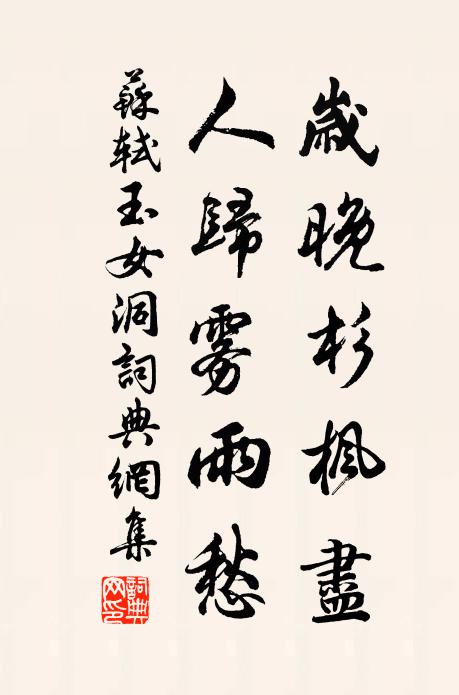 歲晚杉楓盡
人歸霧雨愁
蘇軾玉女洞詞典網集
詞典網印